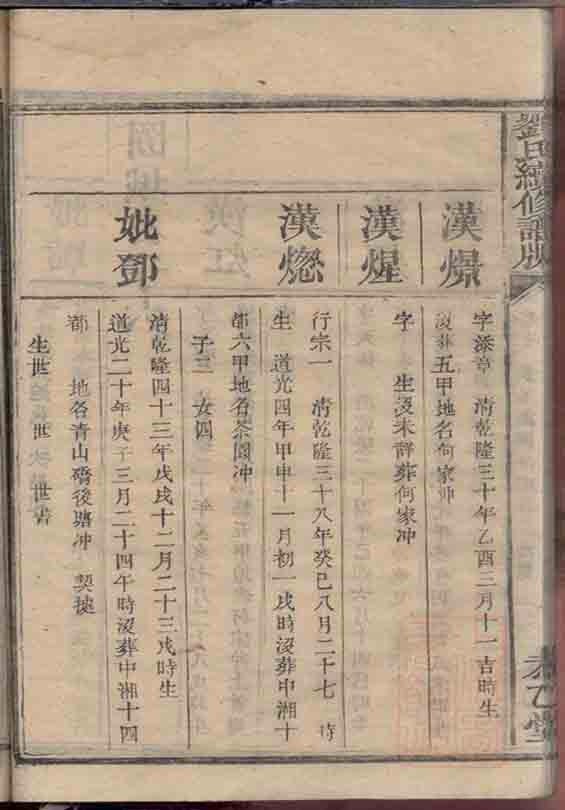 劉氏續修譜牒
漢煾
字添章 清乾隆三十年乙酉三月十一吉時生
沒葬五甲地名何家冲
漢煋
字 生沒未詳葬何家冲
漢燃
行宗一 清乾隆三十八年癸巳八月二十七 時
生 道光四年甲申十一月初一戌時沒葬中湘十
都六甲地名茶園冲
子三 女四
妣鄧
清乾隆四十三年戊戌十二月二十三戌時生
道光二十年庚子三月二十四午時沒葬中湘十四
都 地名青山 後塘冲 契據
生世 世 世書
乙堂